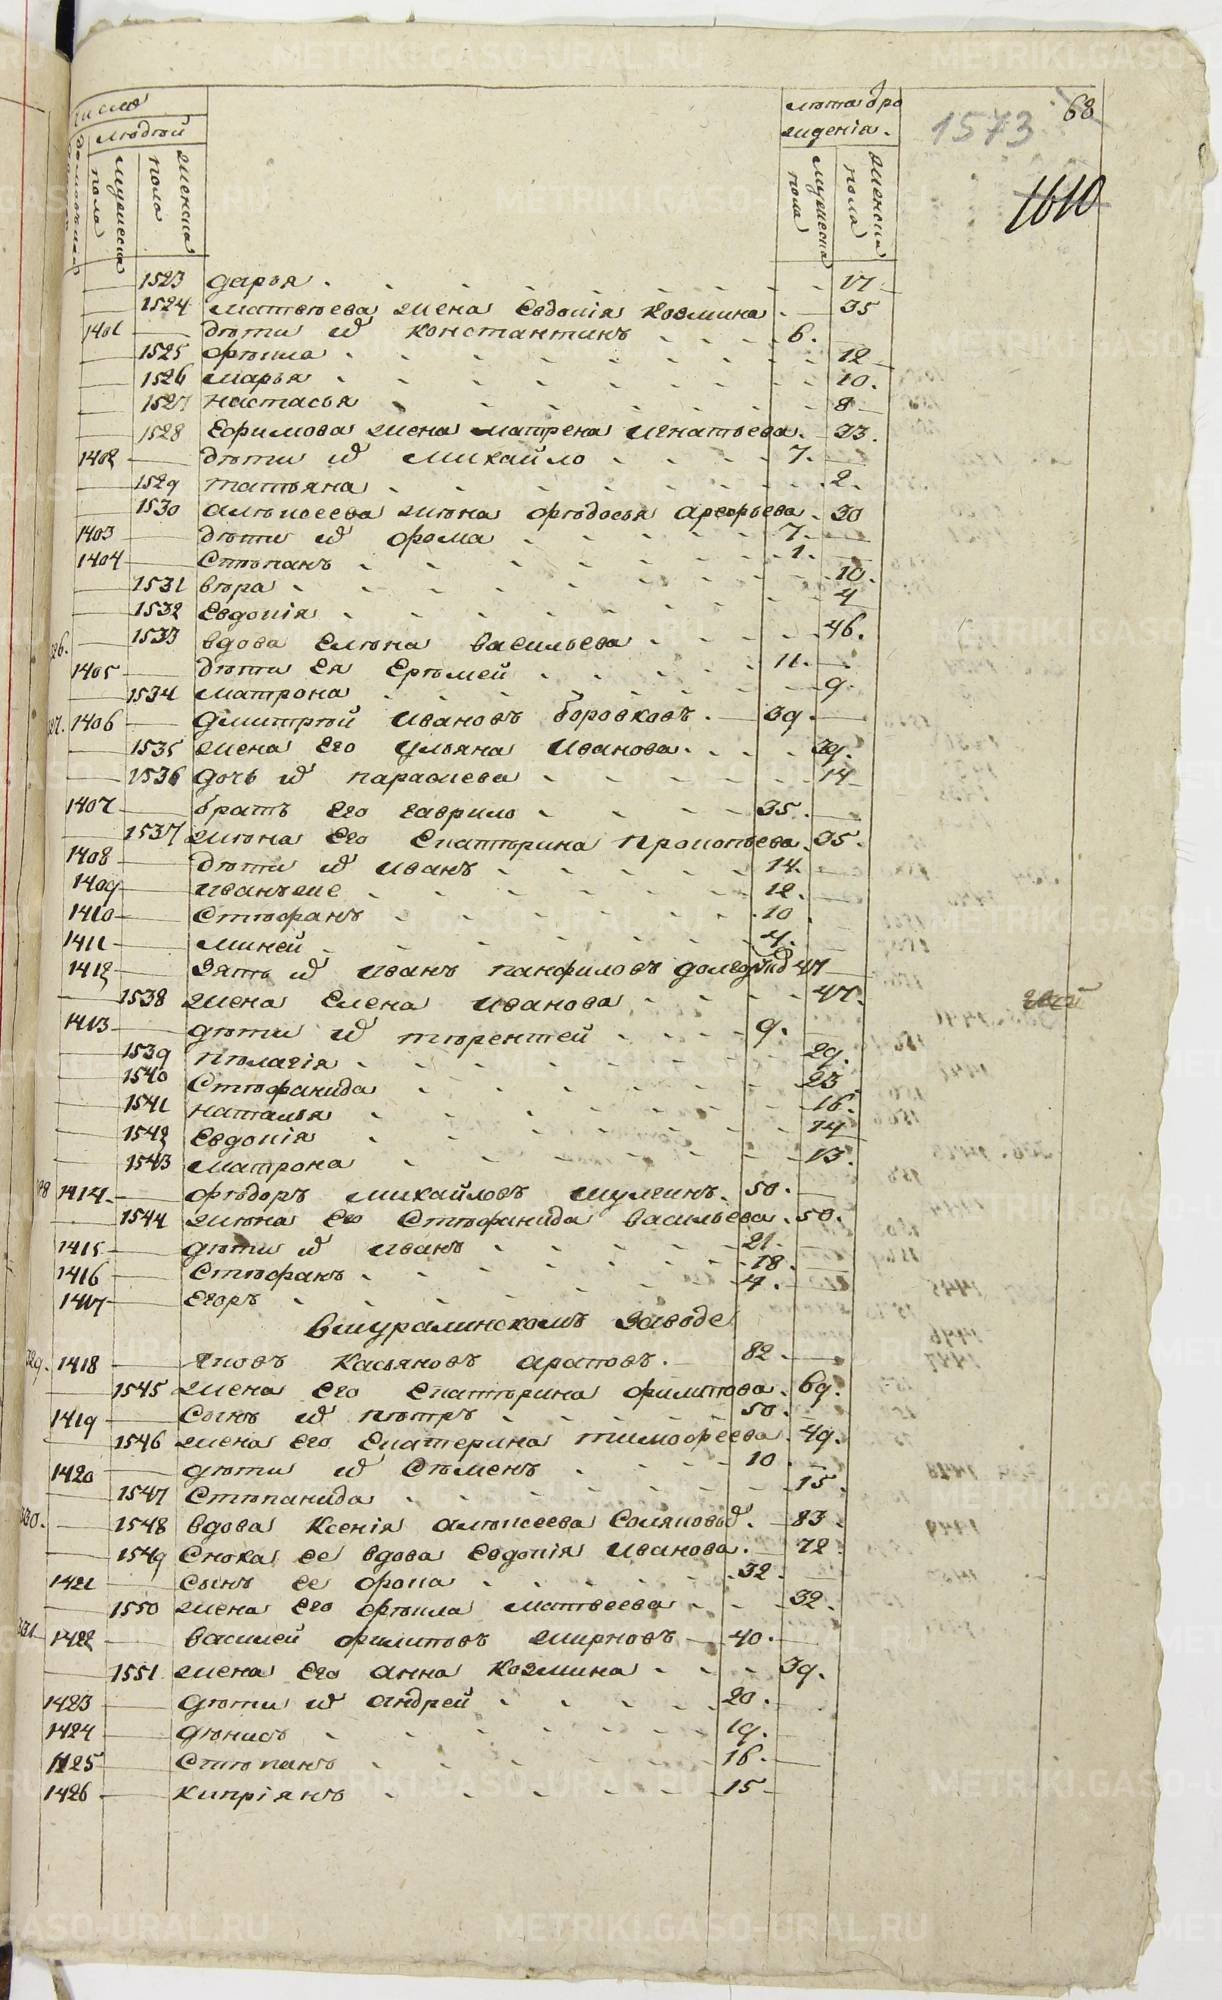 68
1573
1610
число
людей
домовъ
мужеска пола
женска пола
лѣта ѿ рождения
мужеска пола
женска пола
1523 дарья 17
1524 матвѣева жена Евдокія козмина 35
1401 дѣти ѿ константинъ 6.
1525 фѣкла 12
1526 марья 10.
1527 настасья 8
1528 Ефимова жена матрена игнатьева 33.
1402 дѣти ѿ михайло 7.
1529 татьяна 2.
1530 алѣксеева жѣна фѣдосья арефьева 30
1403 дѣти ѿ фома 7.
1404 Стѣпанъ 1.
1531 вѣра 10.
1532 Евдокія 4
326. 1533 вдова Елѣна васильева 46.
1405 дѣти Ея Ерѣмей 11.
1534 матрона 9.
327. 1406 дмитрѣй ивановъ боровковъ 39.
1535 жена Его ульяна иванова 39.
1536 дочь ѿ параскева 14
1407 братъ Его гаврило 35.
1537 жѣна Его Екатѣрина прокопьева 35.
1408 дѣти ѿ иванъ 14.
1409 иванъже 12.
1410 Стѣфанъ 10
1411 миней 4.
1412 Зять ѿ иванъ панфиловъ 47
1538 жена Елена иванова 47.
1413 дѣти ѿ тѣрентей 9.
1539 пѣлагія 29.
1540 Стѣфанида 23
1541 наталья 16.
1542 Евдокія 14
1543 матрона 13.
328 1414. фѣдоръ михайловъ шулгинъ 50.
1544 жѣна Его Стѣфанида васильева 50.
1415 дѣти ѿ иванъ 21.
1416 Стѣфанъ 18.
1417 Егоръ 4.
Вшуралинскомъ Заводе
329. 1418 яковъ касьяновъ араповъ 82
1545 жена Его Екатѣрина филипова 69.
1419 Сынъ ѿ пѣтръ 50.
1546 жена его Екатерина тимофеева 49.
1420 дѣти ѿ Сѣменъ 10
1547 Стѣпанида 15.
330. 1548 вдова Ксенія алѣксеева 83
1549 Сноха ее вдова Евдокія иванова 72
1421 сынъ ее фока 32
1550 жена Его фѣкла матвеева 32.
331 1422 василей филиповъ жирновъ 40.
1551 жена Его анна козмина 39.
1423 дѣти ѿ андрей 20.
1424 дѣнисъ 19.
1425 Стѣпанъ 16.
1426 кипріянъ 15
METRIKI.GASO-URAL.RU